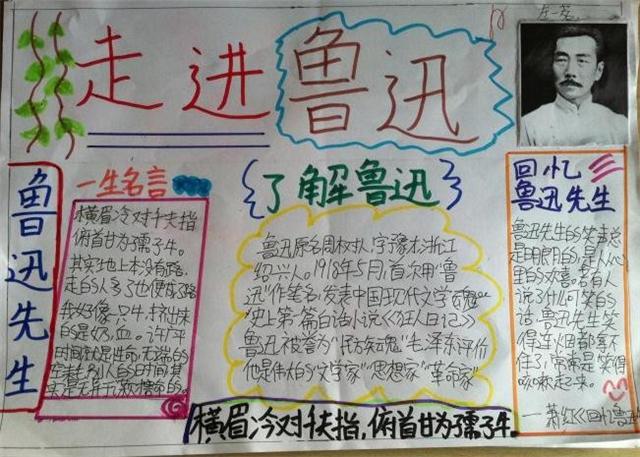 走进鲁迅
鲁迅先生
一生名言
横眉冷对千夫指
俯首甘为孺子牛。
其实地上本没有路,
走的人多了也便成了路
我好像一只牛,挤出来
的是奶,血。许广平
时间就是生命,无端的
的时间其
实是无异于
了解鲁迅
鲁迅原名周树人,字豫才,浙江
绍兴人。1918年5月,首次用“鲁
迅”作笔名,发表中国现代文学
史上第一篇白话小说《狂人日记》
鲁迅被誉为“民族魂”毛泽东评价
他是伟大的“文学家”“思想家”“革命家”
横眉冷对千夫指,俯首甘为孺子牛。
回忆
鲁迅先生
鲁迅先生的笑声总
是明朗的,是从心
里的欢喜。若有人
说了什么可笑的
话,鲁迅先生笑
得连烟都拿不
住了,常常是笑得
咳嗽起来。
—萧红《回忆鲁迅